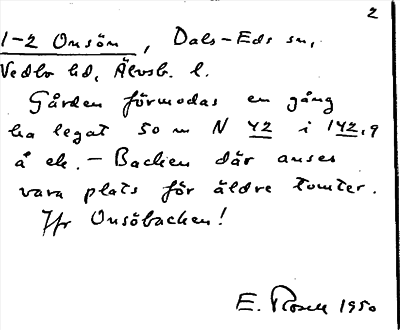 2
1-2 Onsön, Dals-Eds sn,
Vedbo hd, Älvsb. l.
Gården förmodas en gång
ha legat 50 m N 42 i 142,9
å ek. - Backen där anses
vara plats för äldre tomter.
Jfr Onsöbacken!
E. Rosell 1950